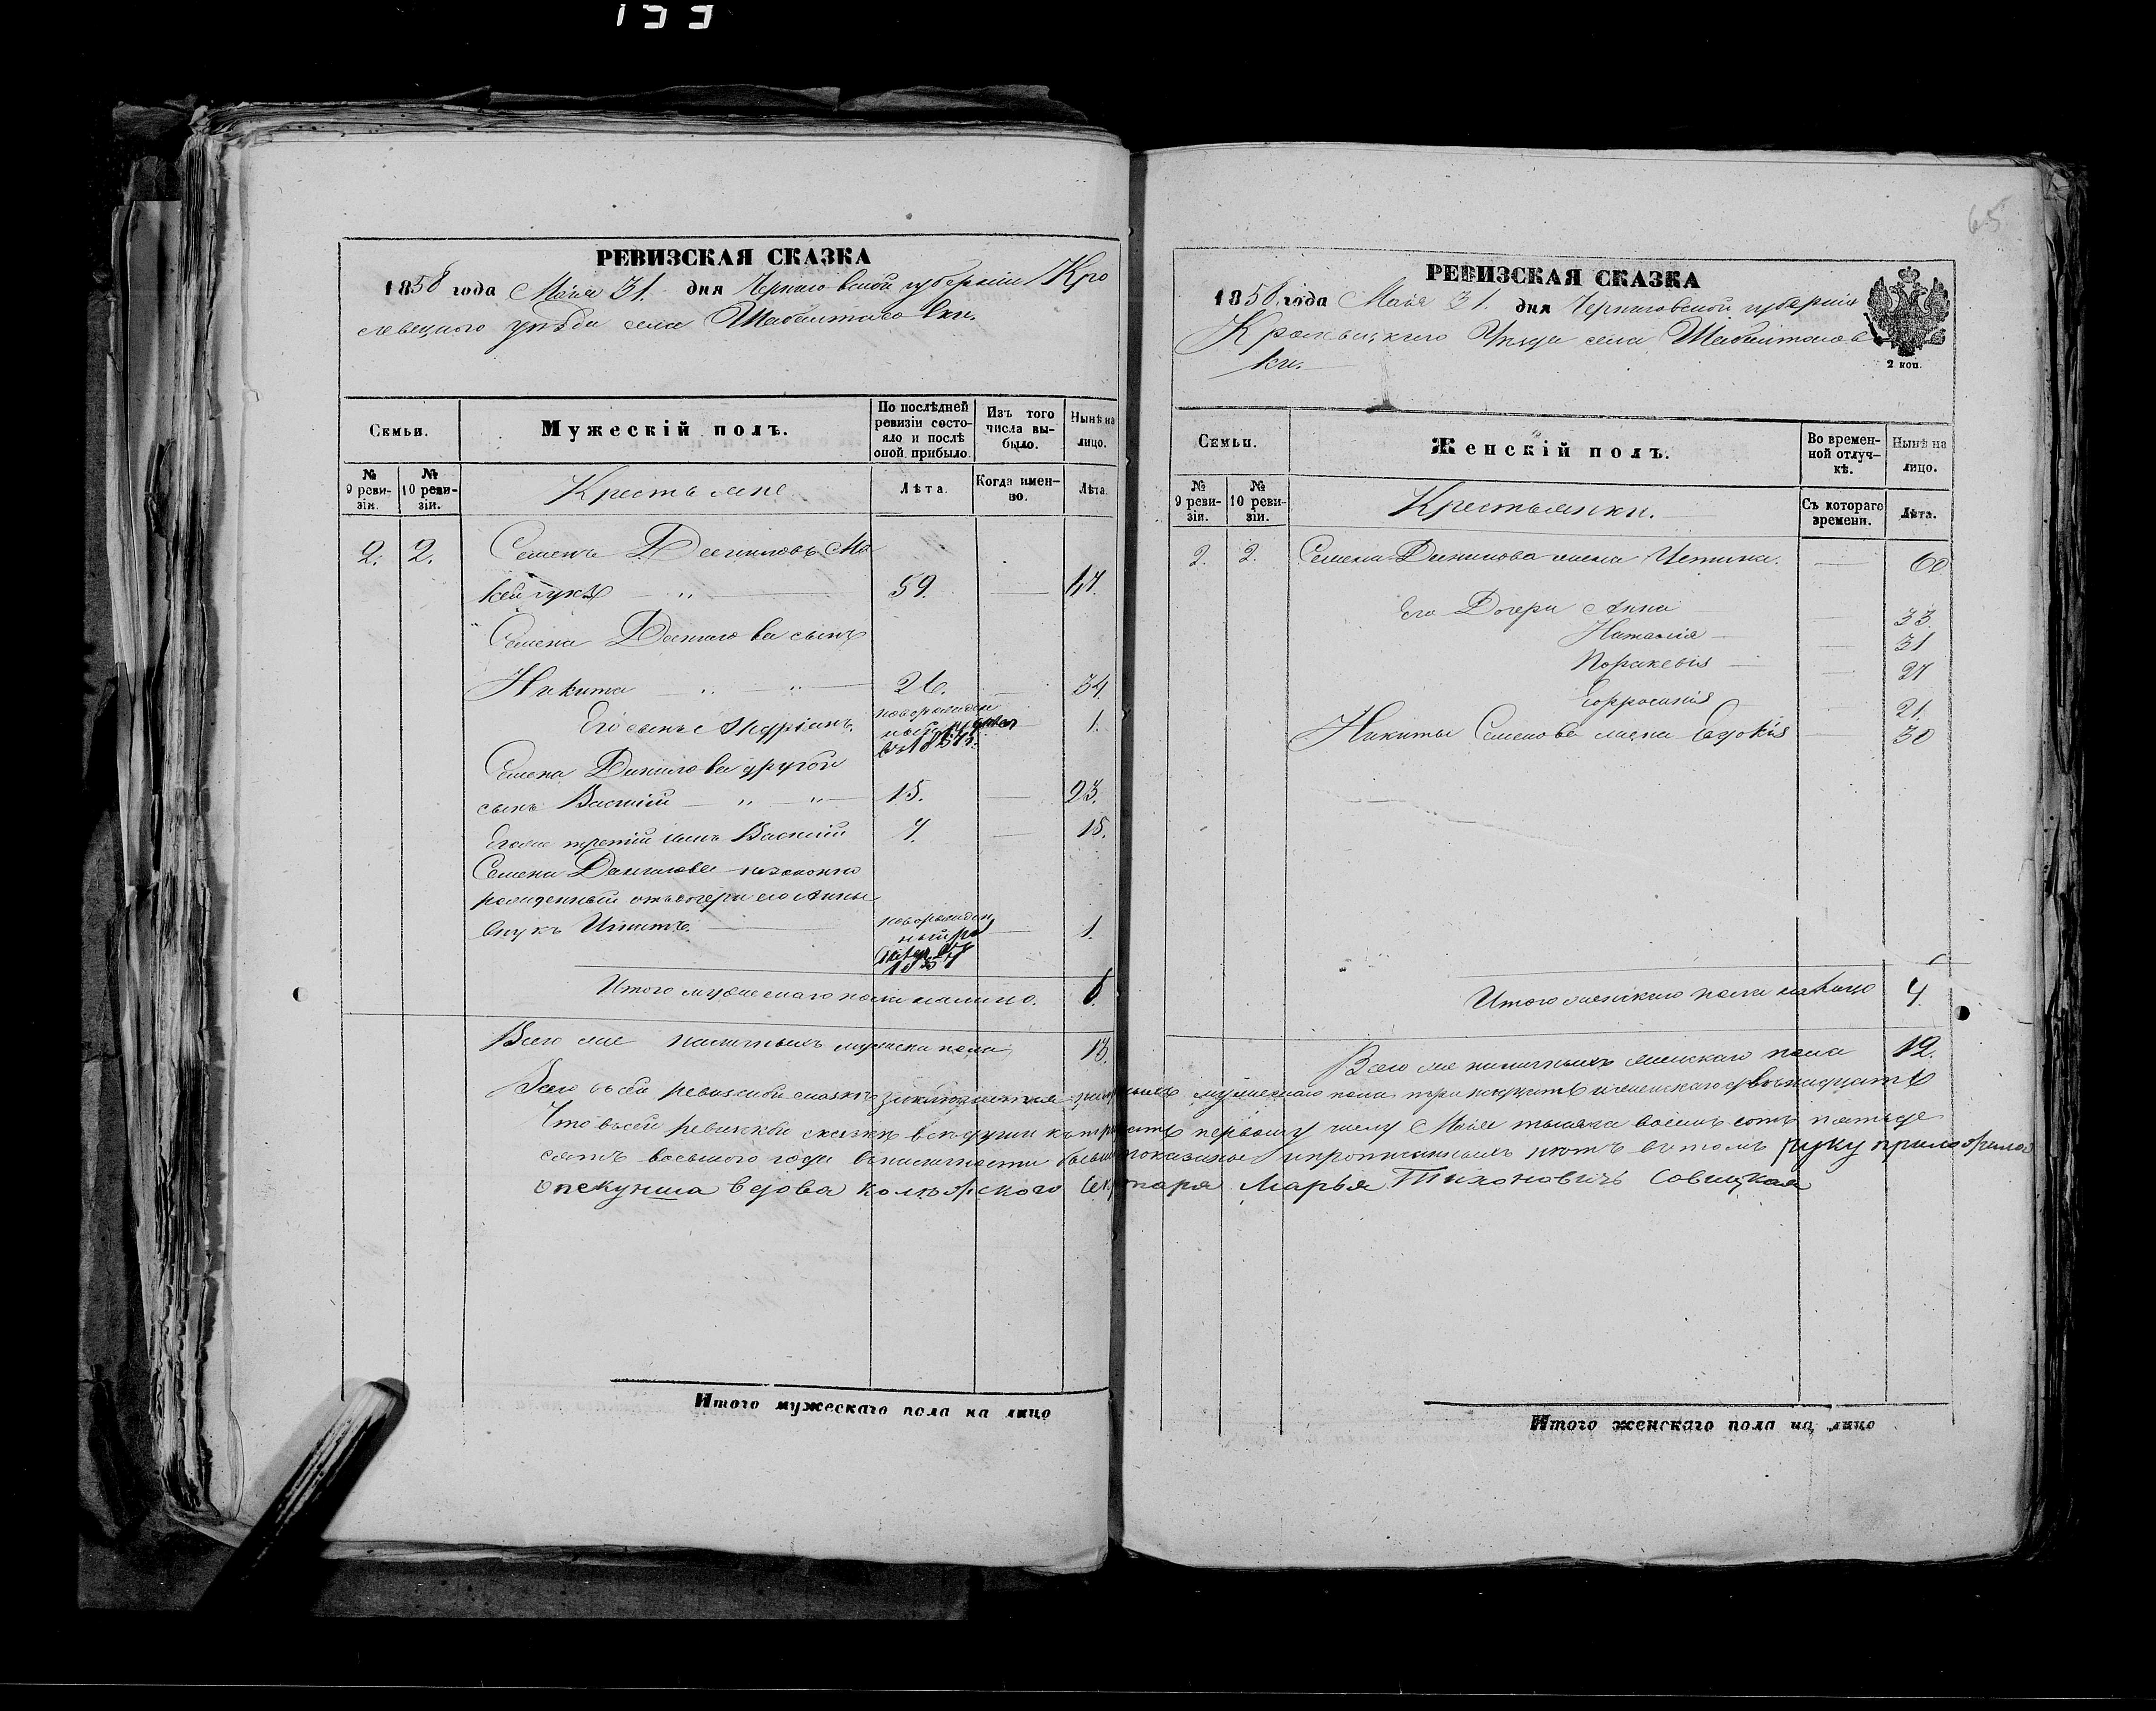 133
РЕВИЗСКАЯ СКАЗКА
1858 года Мая 31. дня Черниговской губернии Кро
левецкого уѣзда села Шабалтасовки.
Семьи.
Мужескій полъ.
По послѣдней ревизіи состояло и послѣ оной прибыло.
Изъ того числа выбыло.
Нынѣ на лицо.
№ 9 ревизіи.
№ 10 ревизіи.
Крестьяне
Лѣта.
Когда именно.
Лѣта.
2. 2. Семенъ Даниловъ
59.
Семена Данилова сынъ
Никита 26. 34.
Его сынъ Андріанъ. новорожден 1.
Семена Данилова другой
сынъ Василій 15. 23.
Егоже третій сынъ Василій 7. 15.
Семена Данилова незаконно
рожденный отъ дочери его Анны
внукъ Игнатъ. новорожден 1.
ный
1857
Итого мужескаго пола налицо. 6.
Всего же наличныхъ мужеска пола 13.
РЕВИЗСКАЯ СКАЗКА
1858 года Мая 31. дня Черниговской губерніи
Кролевецкаго Уѣзда села Шабалтасов
ки.
2 коп.
65
Семьи.
Женскій полъ.
Во временной отлучкѣ.
Нынѣ на лицо.
№ 9 ревизіи.
№ 10 ревизіи.
Крестьянки.
Съ котораго времени.
Лѣта.
2. 2. Семена Данилова жена Устина. 60
Его Дочери Анна 33.
Наталія 31
Параскевія 27
Евфросинія 21.
Никиты Семенова жена Евдокія 30
Итого женскаго пола налицо
Всего же наличныхъ женскаго пола 12.
Всего въ сей ревизской сказкѣ заключается наличныхъ мужескаго пола тринадцать и женскаго двенадцать
Что въ сей ревизской сказкѣ къ тридцать первому числу Маія тысяча восемь сотъ пятьде
сятъ восьмого года въ наличности показаны и прописныхъ нѣтъ въ томъ руку приложила
опекунша вдова колѣжского Секретаря Марья Тихоновичъ Савицкая
Итого мужескаго пола на лицо
Итого женскаго пола на лицо